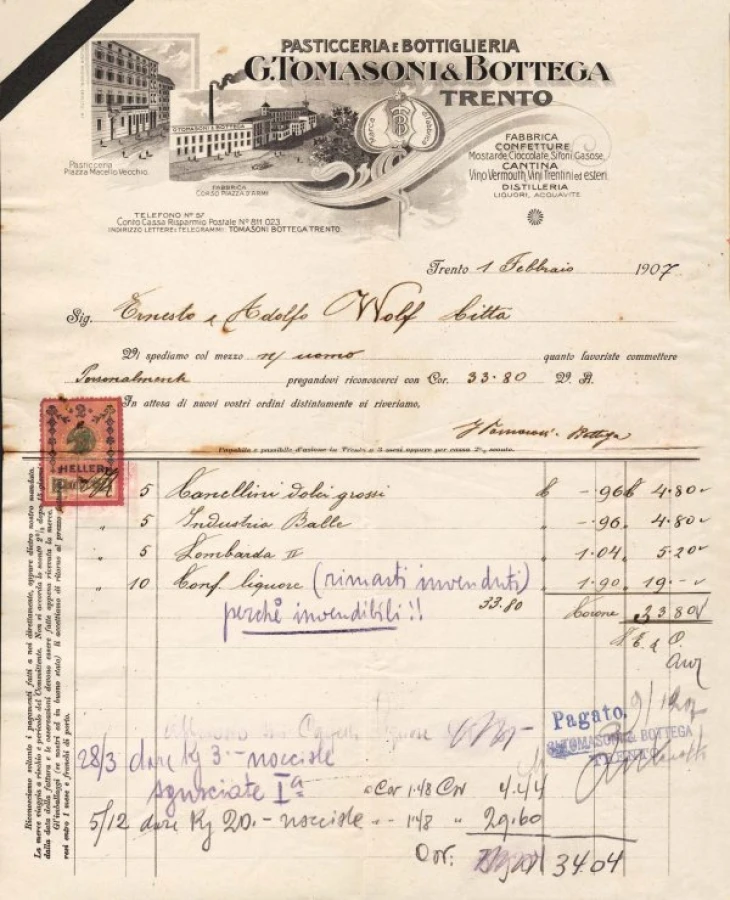 PASTICCERIA E BOTTIGLIERIA
G. TOMASONI & BOTTEGA
TRENTO
G. TOMASONI & BOTTEGA
Marca di fabbrica
TB
Pasticceria
Piazza Macello Vecchio.
FABBRICA
CORSO PIAZZA D'ARMI
FABBRICA
CONFETTURE
Mostarde, Cioccolate, Sifoni, Gasose,
CANTINA
Vino Vermouth, Vini Trentini ed esteri.
DISTILLERIA
LIQUORI, ACQUAVITE
TELEFONO Nº 57
Conto Cassa Risparmio Postale Nº 811 023
INDIRIZZO LETTERE E TELEGRAMMI: TOMASONI BOTTEGA TRENTO.
Trento 1 Febbraio 1907
Sig. Ernesto e Adolfo Wolf Città
Vi spediamo col mezzo n/ uomo quanto favoriste commettere
Personalmente pregandovi riconoscerci con Cor. 33.80 V. A.
In attesa di nuovi vostri ordini distintamente vi riveriamo,
G Tomasoni & Bottega
Pagabile e passibile d'azione in Trento a 3 mesi oppure per cassa 2% sconto.
2
HELLER
5 Canellini dolci grossi -.96 4.80
" 5 Industria Balle " -.96 " 4.80
" 5 Lombarda II " 1.04 " 5.20
" 10 Conf. liquore (rimasti invenduti) " 1.90 " 19.-
perchè invendibili!!
33.80
Corone 33.80
S. E. & O.
Riconosciamo soltanto i pagamenti fatti a noi direttamente, oppure dietro nostro mandato.
La merce viaggia a rischio e pericolo del Committente. Non si accorda lo sconto 2% dopo 15 giorni
dalla data della fattura e le osservazioni devono essere fatte appena ricevuta la merce.
Gl'imballaggi (se nostri ed in buono stato) li accettiamo di ritorno al prezzo
entro 1 mese e franchi di porto.
Pagato.
G. TOMASONI & BOTTEGA
TRENTO
28/3 dare Kg 3.- nocciole
sgusciate Iª a Cor 1.48 Cor 4.44
5/12 dare Kg 20.- nocciole " - 1.48 " 29.60
Cor: 34.04